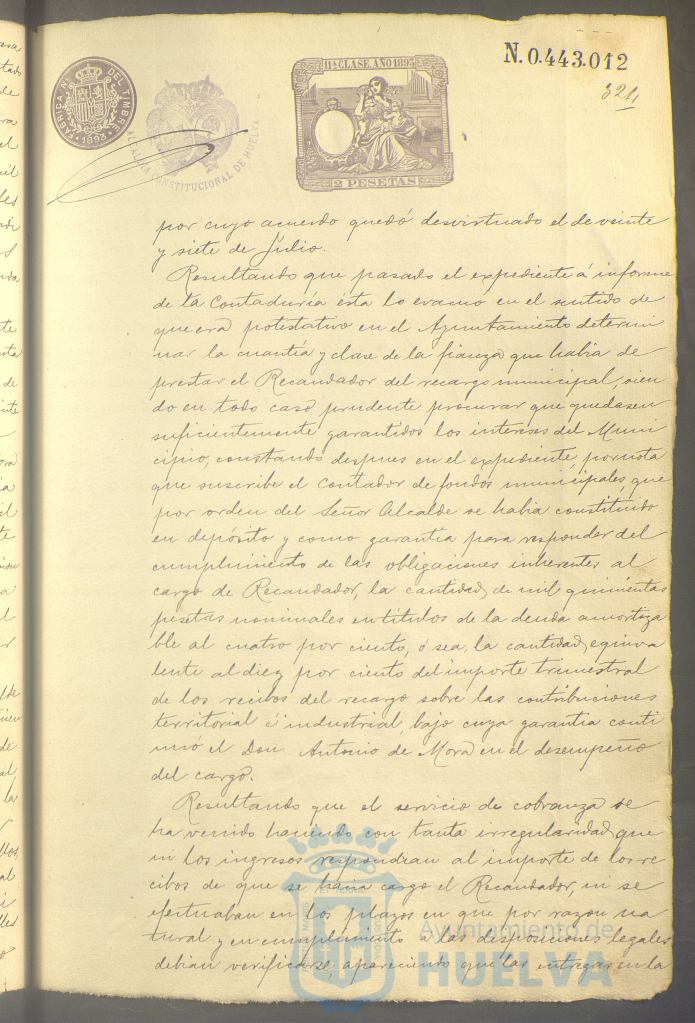 FABRICA Nl. DEL TIMBRE
1893
ALCALDIA CONSTITUCIONAL DE HUELVA
11ª CLASE. AÑO 1893
2 PESETAS
N.0.443.012
324
por cuyo acuerdo quedó desvirtuado el de veinte
y siete de Julio.
Resultando que pasado el expediente á informe
de la Contaduría ésta lo evacuo en el sentido de
que era potestativo en el Ayuntamiento determi
nar la cuantía y clase de la fianza que habia de
prestar el Recaudador del recargo municipal, sien
do en todo caso prudente procurar que quedasen
suficientemente garantidos los intereses del Muni
cipio, constando despues en el expediente por nota
que suscribe el Contador de fondos municipales, que
por orden del Señor Alcalde se habia constituido
en depósito y como garantia para responder del
cumplimiento de las obligaciones inherentes al
cargo de Recaudador, la cantidad de mil quinientas
pesetas nominales en títulos de la deuda amortiza
ble al cuatro por ciento, ó sea, la cantidad equiva
lente al diez por ciento del importe trimestral
de los recibos del recargo sobre las contribuciones
territorial é industrial, bajo cuya garantia conti
nuó el Don Antonio de Mora en el desempeño
del cargo.
Resultando que el servicio de cobranza se
ha venido haciendo con tanta irregularidad, que
ni los ingresos respondian al importe de los re
cibos de que se hacia cargo el Recaudador, ni se
efectuaban en los plazos en que por razon na
tural y en cumplimiento á las disposiciones legales
debian verificarse apareciendo que las entregas en la
Ayuntamiento de
HUELVA